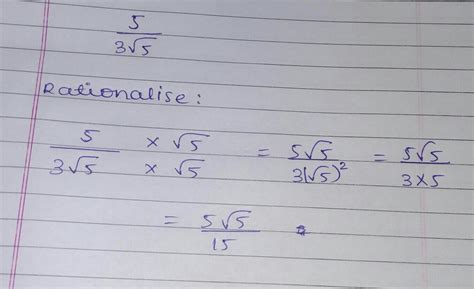 5/3√5
Rationalise:
5/3√5 × √5/× √5 = 5√5/3(√5)² = 5√5/3×5
= 5√5/15